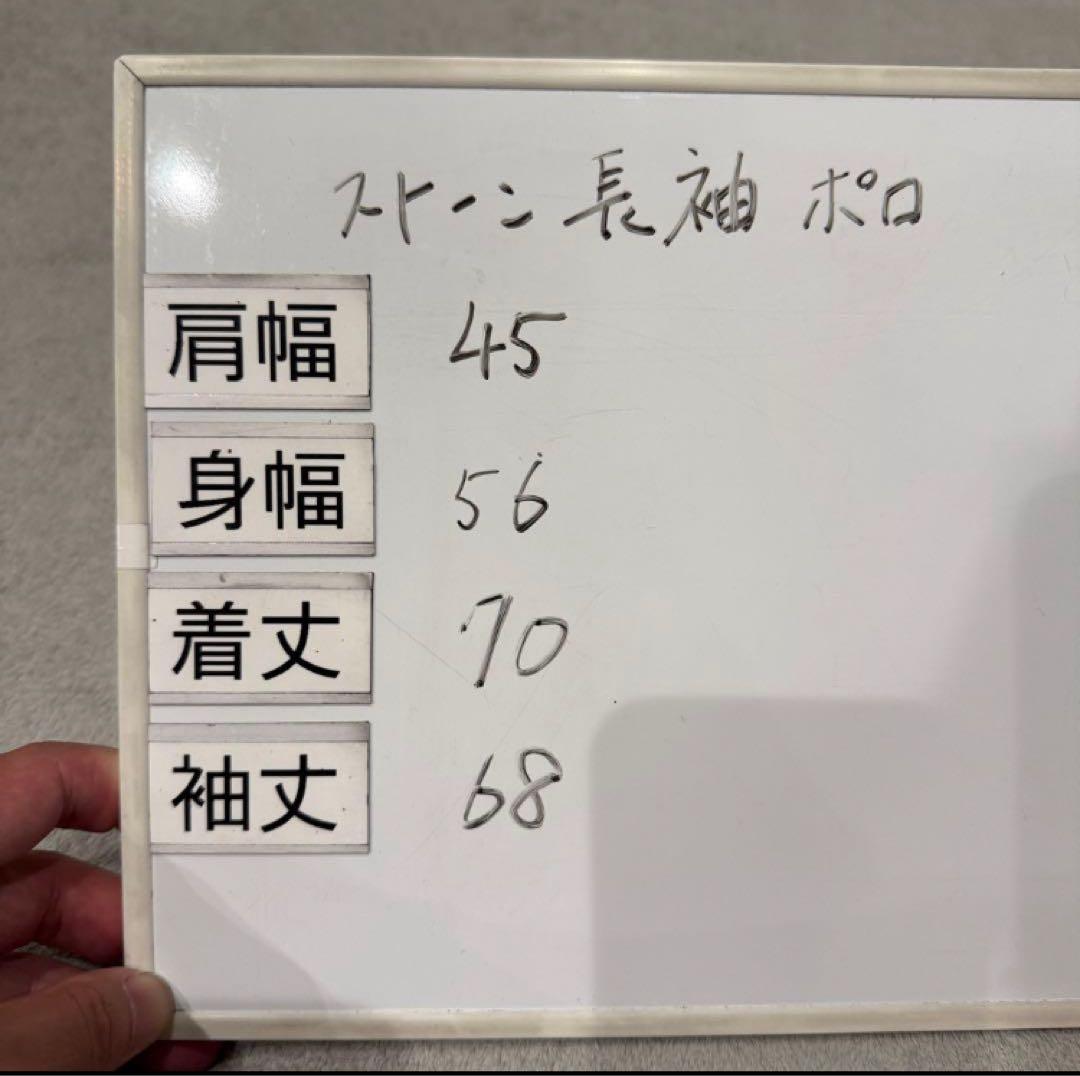 ストーン 長袖 ポロ
肩幅 45
身幅 56
着丈 70
袖丈 68